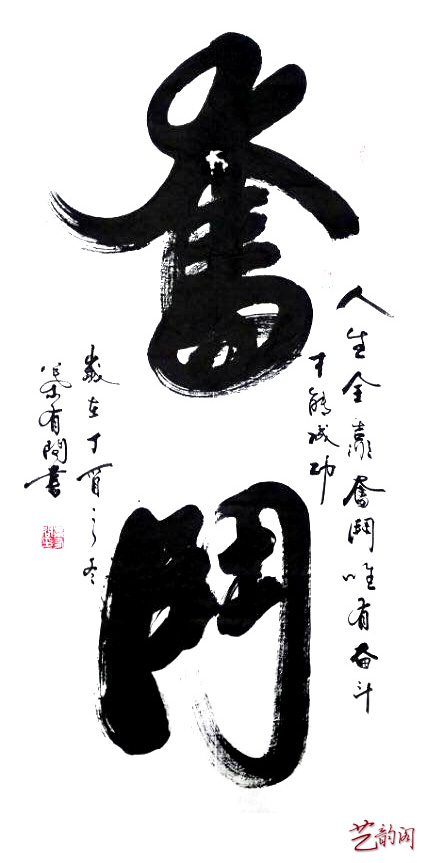 奮鬥
人生全靠奮鬥唯有奋斗
才能成功
歲在丁酉之冬
有書
艺韵阁